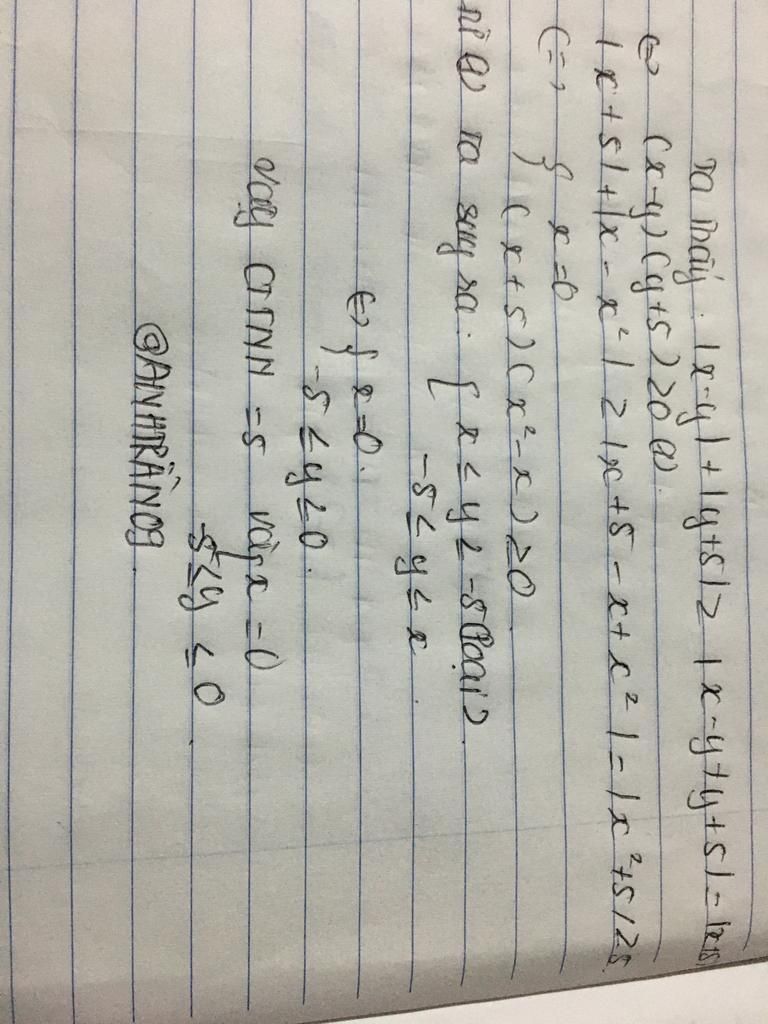 Ta thấy: |x-y| + |y+5| ≥ |x-y+y+5| = |x+5|
(=) (x-y)(y+5) ≥ 0 (1).
|x+5| + |x-x²| ≥ |x+5-x+x²| = |x²+5| ≥ 5.
(=) { x=0
(x+5)(x²-x) ≥ 0.
Từ (1) ta suy ra: { x ≤ y ≤ -5 (loại)
-5 ≤ y ≤ x.
(=) { x=0.
-5 ≤ y ≤ 0.
Vậy GTNN =5 vậy { x=0
-5 ≤ y ≤ 0.
@ANHTRẦN09.